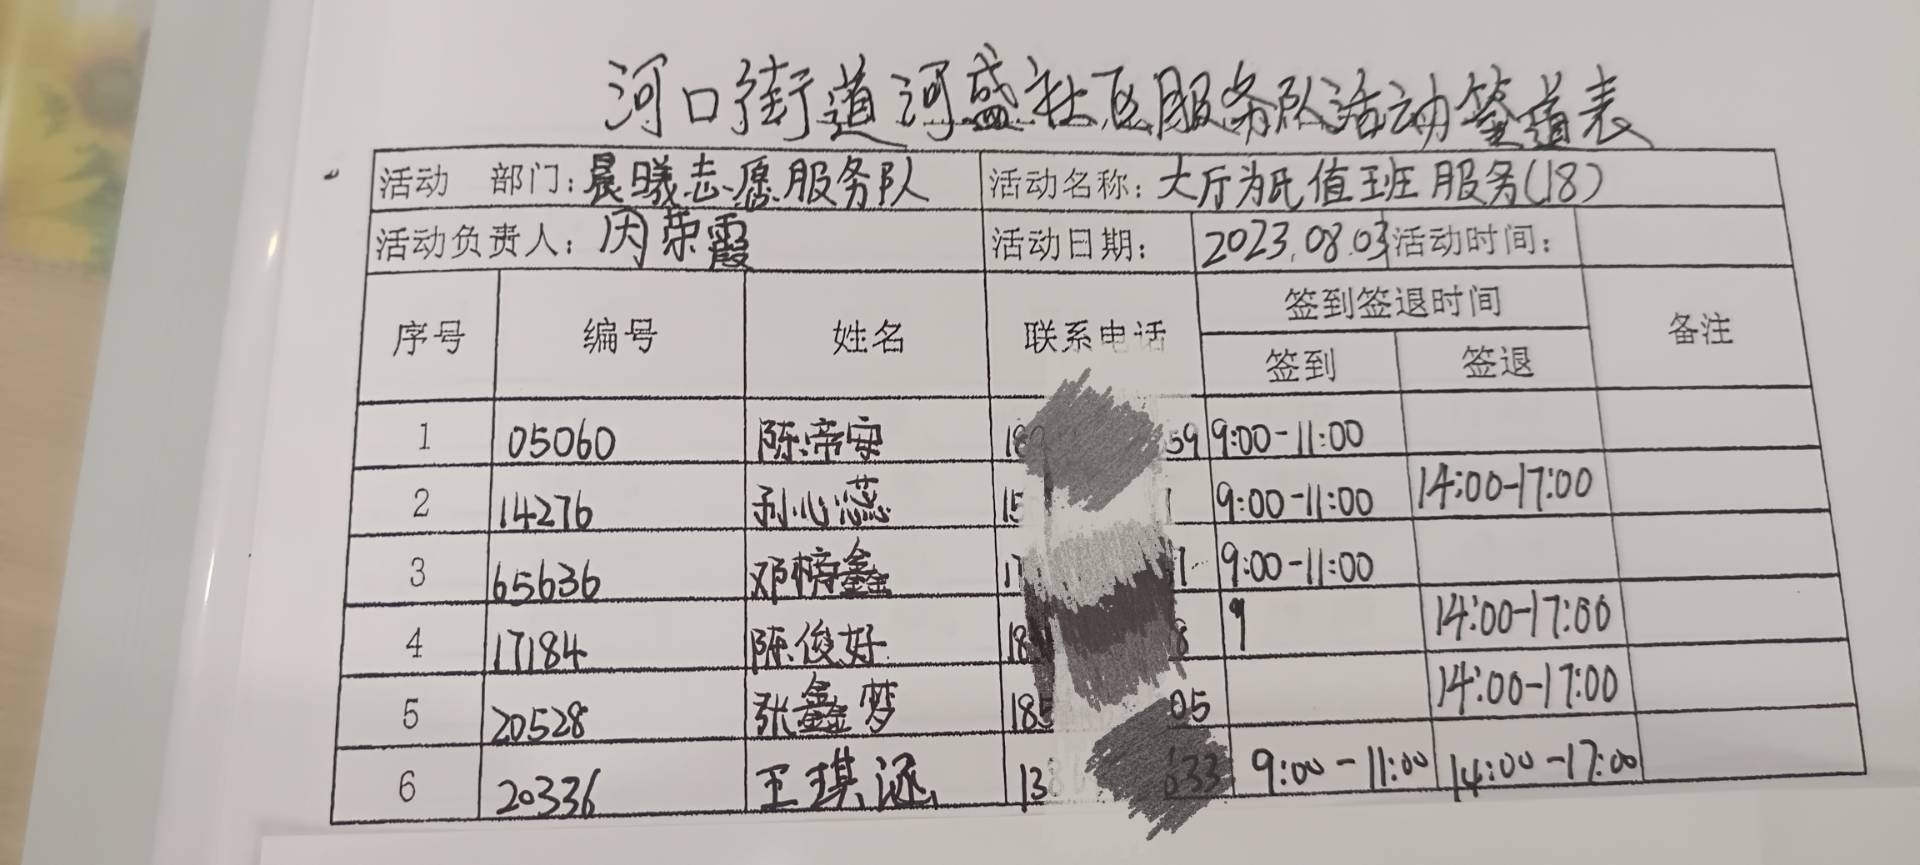 河口街道河盛社区服务队活动签道表
活动 部门：晨曦志愿服务队 活动名称：大厅为民值班服务(18)
活动负责人：闵荣霞 活动日期： 2023.08.03 活动时间：
序号 编号 姓名 联系电话 签到签退时间 备注
签到 签退
1 05060 陈帝安 59 9:00-11:00
2 14276 孙心蕊 15 9:00-11:00 14:00-17:00
3 65636 邓榜鑫 17 9:00-11:00
4 17184 陈俊好 18 8 9 14:00-17:00
5 20528 张鑫梦 185 05 14:00-17:00
6 20336 王琪涵 13 633 9:00-11:00 14:00-17:00